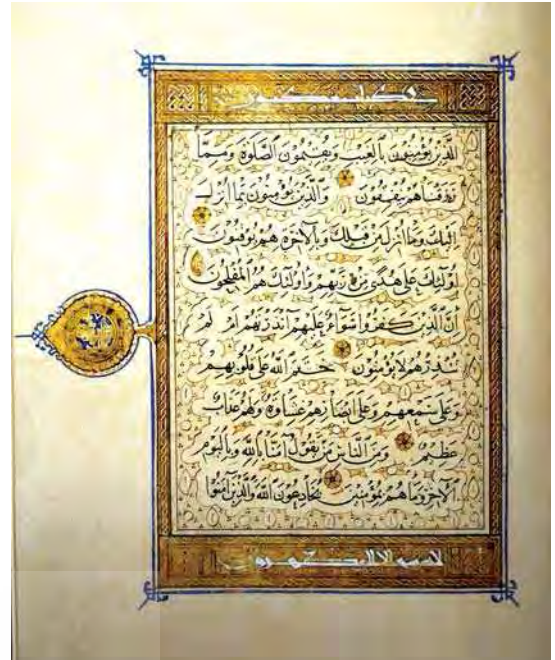 في كتاب مكنون
الذين يؤمنون بالغيب ويقيمون الصلوة ومما
رزقناهم ينفقون والذين يؤمنون بما انزل
اليك وما انزل من قبلك وبالآخرة هم يوقنون
اولئك على هدى من ربهم واولئك هم المفلحون
ان الذين كفروا سواء عليهم أنذرتهم ام لم
تنذرهم لا يؤمنون ختم الله على قلوبهم
وعلى سمعهم وعلى ابصارهم غشاوة ولهم عذاب
عظيم ومن الناس من يقول آمنا بالله وباليوم
الآخر وما هم بمؤمنين يخادعون الله والذين آمنوا
لا يمسه الا المطهرون